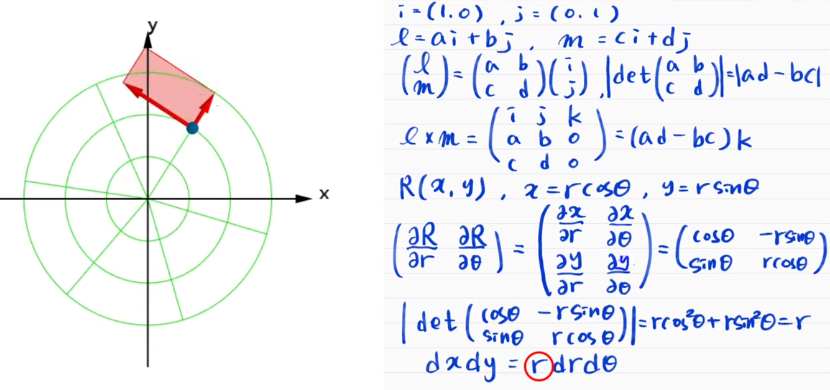 y
x
i = (1.0) , j = (0.1)
l = ai + bj , m = ci + dj
(l m) = (a b c d)(i j) , |det(a b c d)| = |ad - bc|
l × m = (i j k a b 0 c d 0) = (ad - bc) k
R(x, y) , x = rcosθ , y = rsinθ
(∂R/∂r ∂R/∂θ) = (∂x/∂r ∂x/∂θ ∂y/∂r ∂y/∂θ) = (cosθ -rsinθ sinθ rcosθ)
|det(cosθ -rsinθ sinθ rcosθ)| = rcos²θ + rsin²θ = r
dxdy = r drdθ